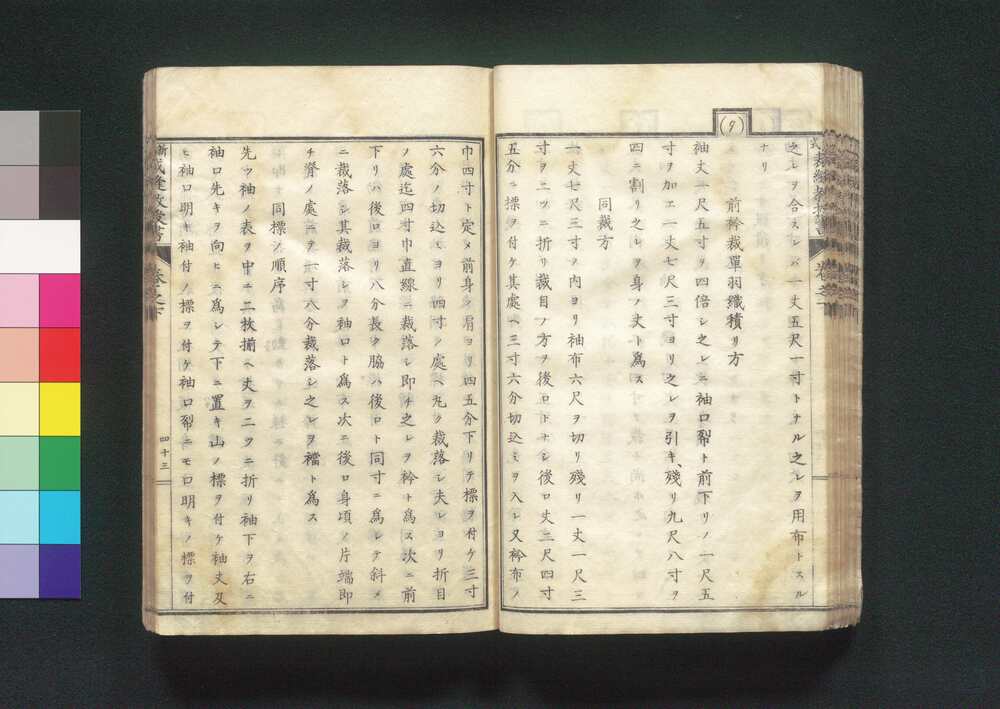 (ワ)
之レヲ合スレバ一丈五尺一寸トナル之レヲ用布トスル
ナリ
前衿裁單羽織積リ方
袖丈一尺五寸ヲ四倍シ之レニ袖口裂ト前下リノ一尺五
寸ヲ加エ一丈七尺三寸ヨリ之レヲ引キ、殘リ九尺八寸ヲ
四ニ割リ之レヲ身ノ丈ト爲ス
同裁方
一丈七尺三寸ヲ内ヨリ袖布六尺ヲ切リ殘リ一丈一尺三
寸ヲ二ツニ折リ裁目ノ方ヲ後ロトナシ後ロ丈二尺四寸
五分ニ標ヲ付ケ其處ヘ三寸六分切込ミヲ入レ又衿布ノ
巾四寸ト定メ前身ノ肩ヨリ四五分下リテ標ヲ付ケ三寸
六分ノ切込ミヨリ四寸ノ處ヘ丸ク裁落シ夫レヨリ折目
ノ處迄四寸巾直線ニ裁落シ即チ之レヲ衿ト爲ス次ニ前
下リハ後ロヨリ八分長ク脇ハ後ロト同寸ニ爲シテ斜メ
ニ裁落シ其裁落シヲ袖口ト爲ス次ニ後ロ身項ノ片端即
チ脊ノ處ニヲ一寸八分裁落シ之レヲ襠ト爲ス
同標ノ順序
先ツ袖ノ表ヲ中ニ二枚揃ヘ丈ヲ二ツニ折リ袖下ヲ右ニ
袖口先キヲ向ヒニ爲シテ下ニ置キ山ノ標ヲ付ケ袖丈及
ヒ袖口明キ袖付ノ標ヲ付ケ袖口裂ニモ口明キノ標ヲ付
裁縫教授書 卷之下
四十三